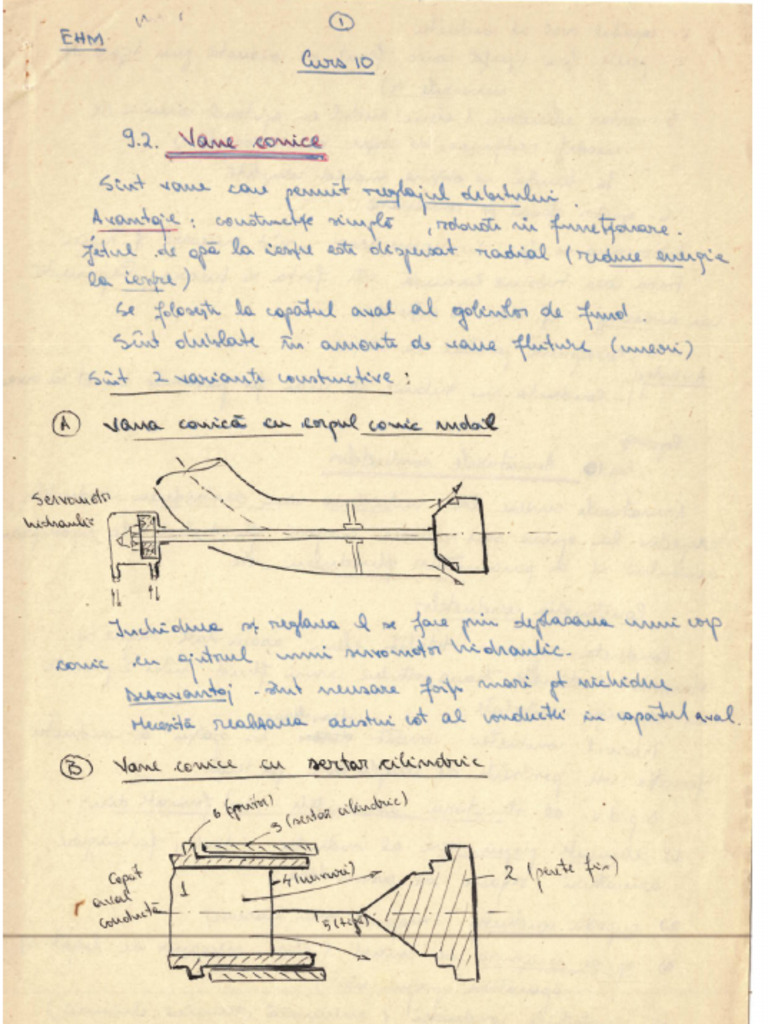 1
EHM
Curs 10
9.2. Vane conice
Sînt vane care permit reglajul debitului
Avantaje : construcție simplă , robuste în funcționare.
Jetul de apă la ieșire este dispersat radial (reduce energia
la ieșire)
Se folosește la capătul aval al golirilor de fund.
Sînt dublate în amonte de vane fluture (uneori)
Sînt 2 variante constructive :
A Vana conică cu corpul conic mobil
Servomotor
hidraulic
Închiderea și reglarea se face prin deplasarea unui corp
conic cu ajutorul unui servomotor hidraulic.
Dezavantaj - sînt necesare forțe mari pt închidere
Necesită realizarea acestui cot al conductei in capătul aval.
B Vane conice cu sertar cilindric
6 (ghidaj)
3 (sertar cilindric)
Capăt
aval
conductă
1
4 (nervuri)
5 (tijă)
2 (perete fix)